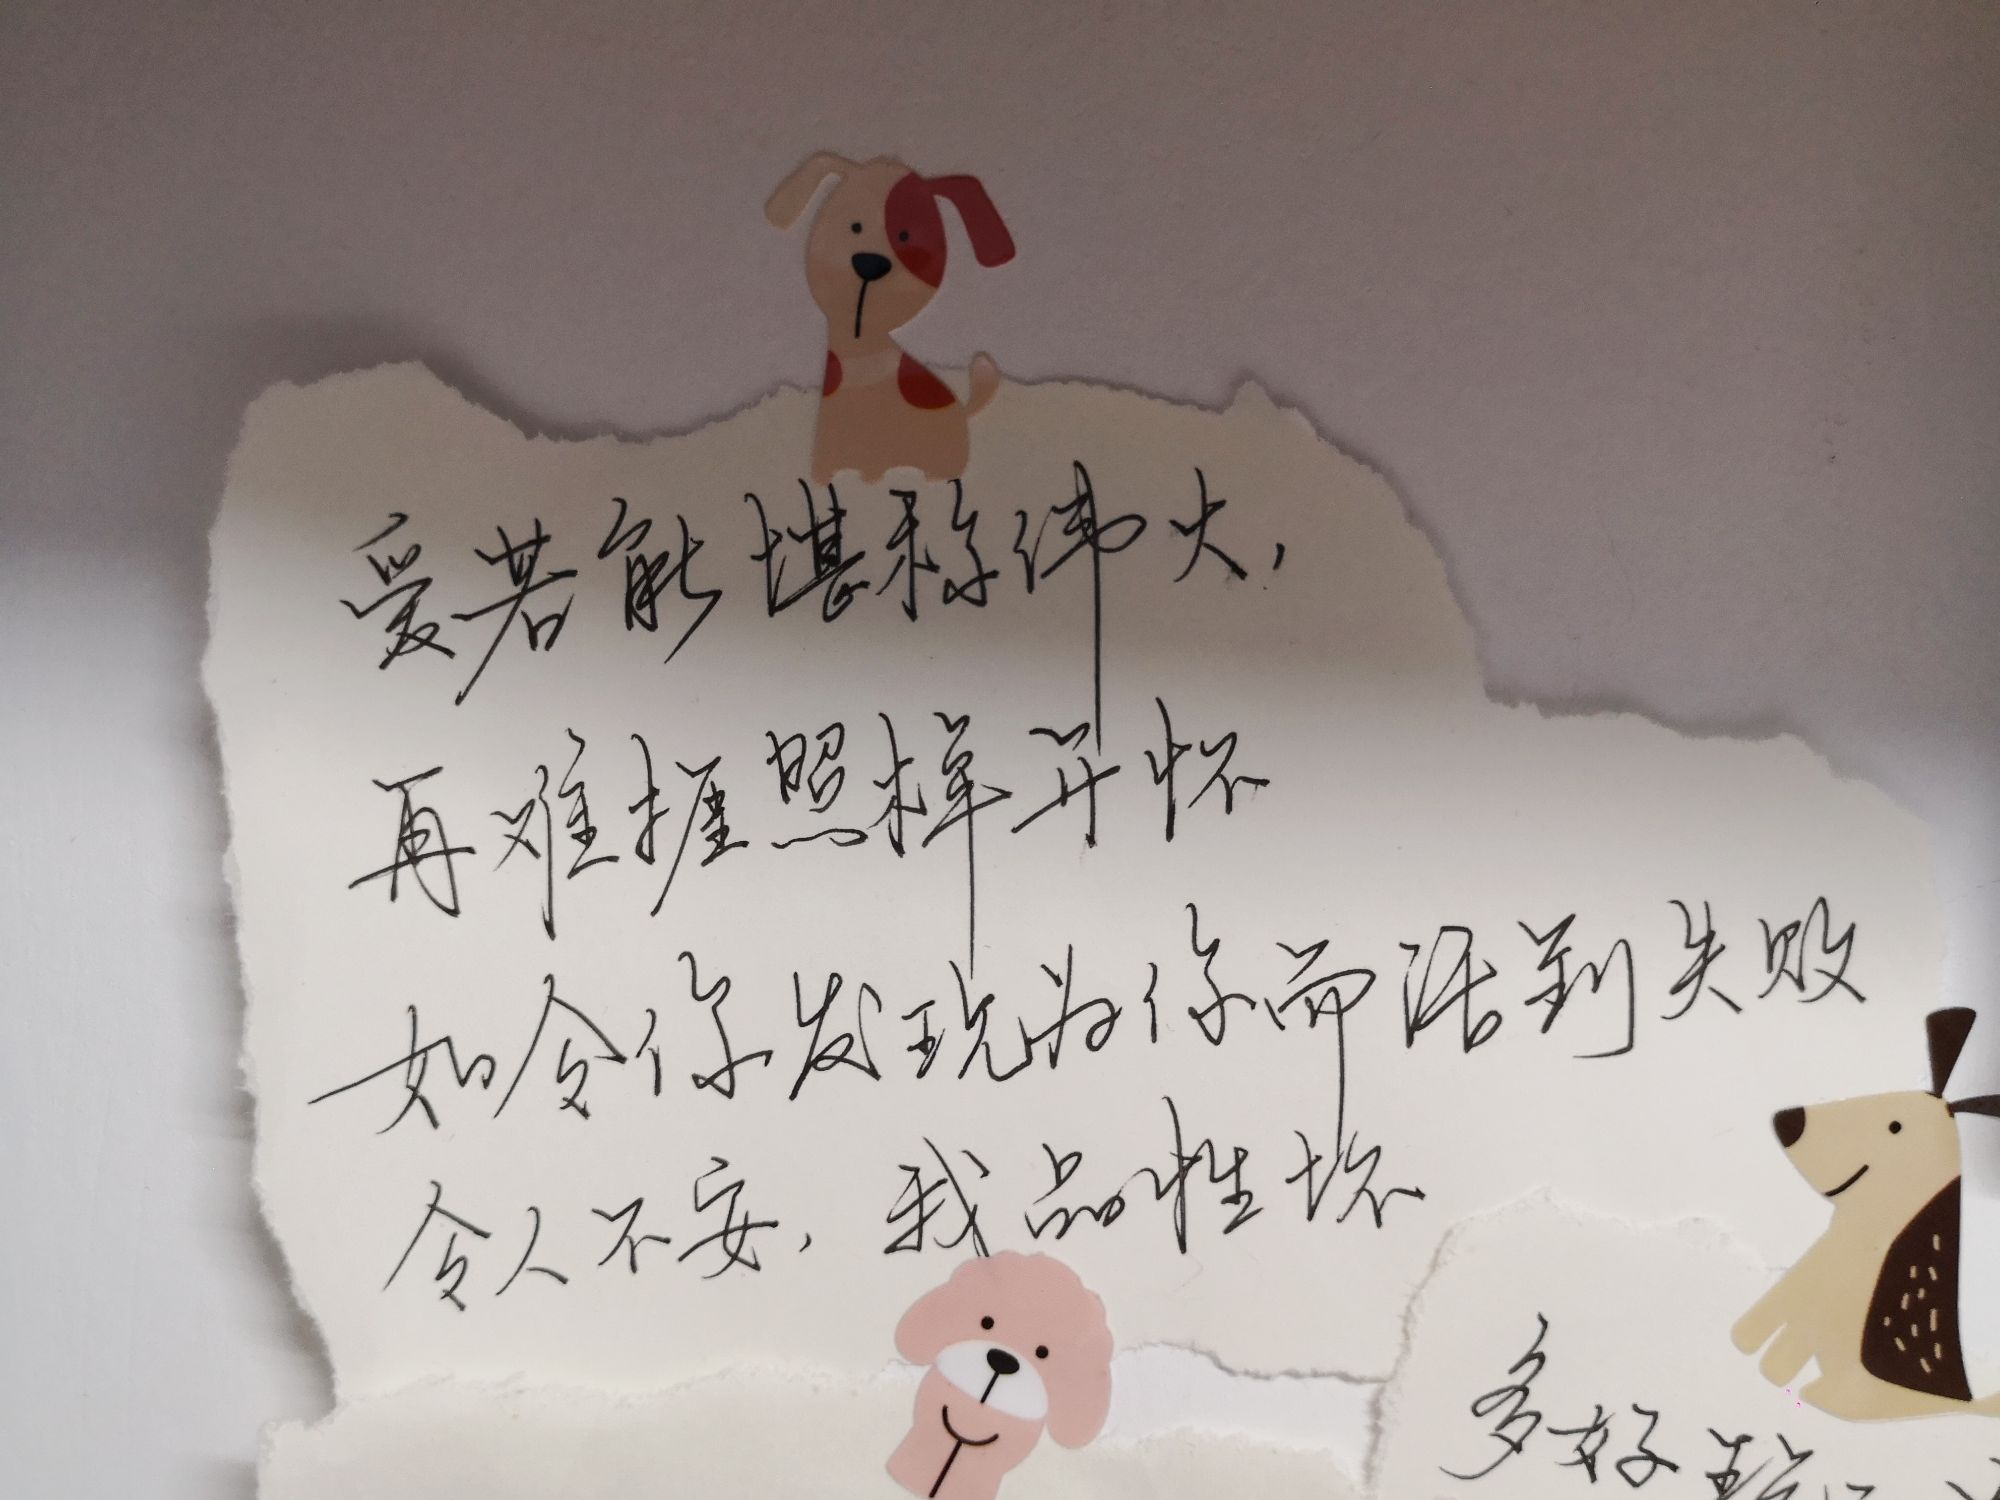 爱若能堪称伟大，
再难捱照样开怀
如令你发现为你而活到失败
令人不安，我品性坏
多好